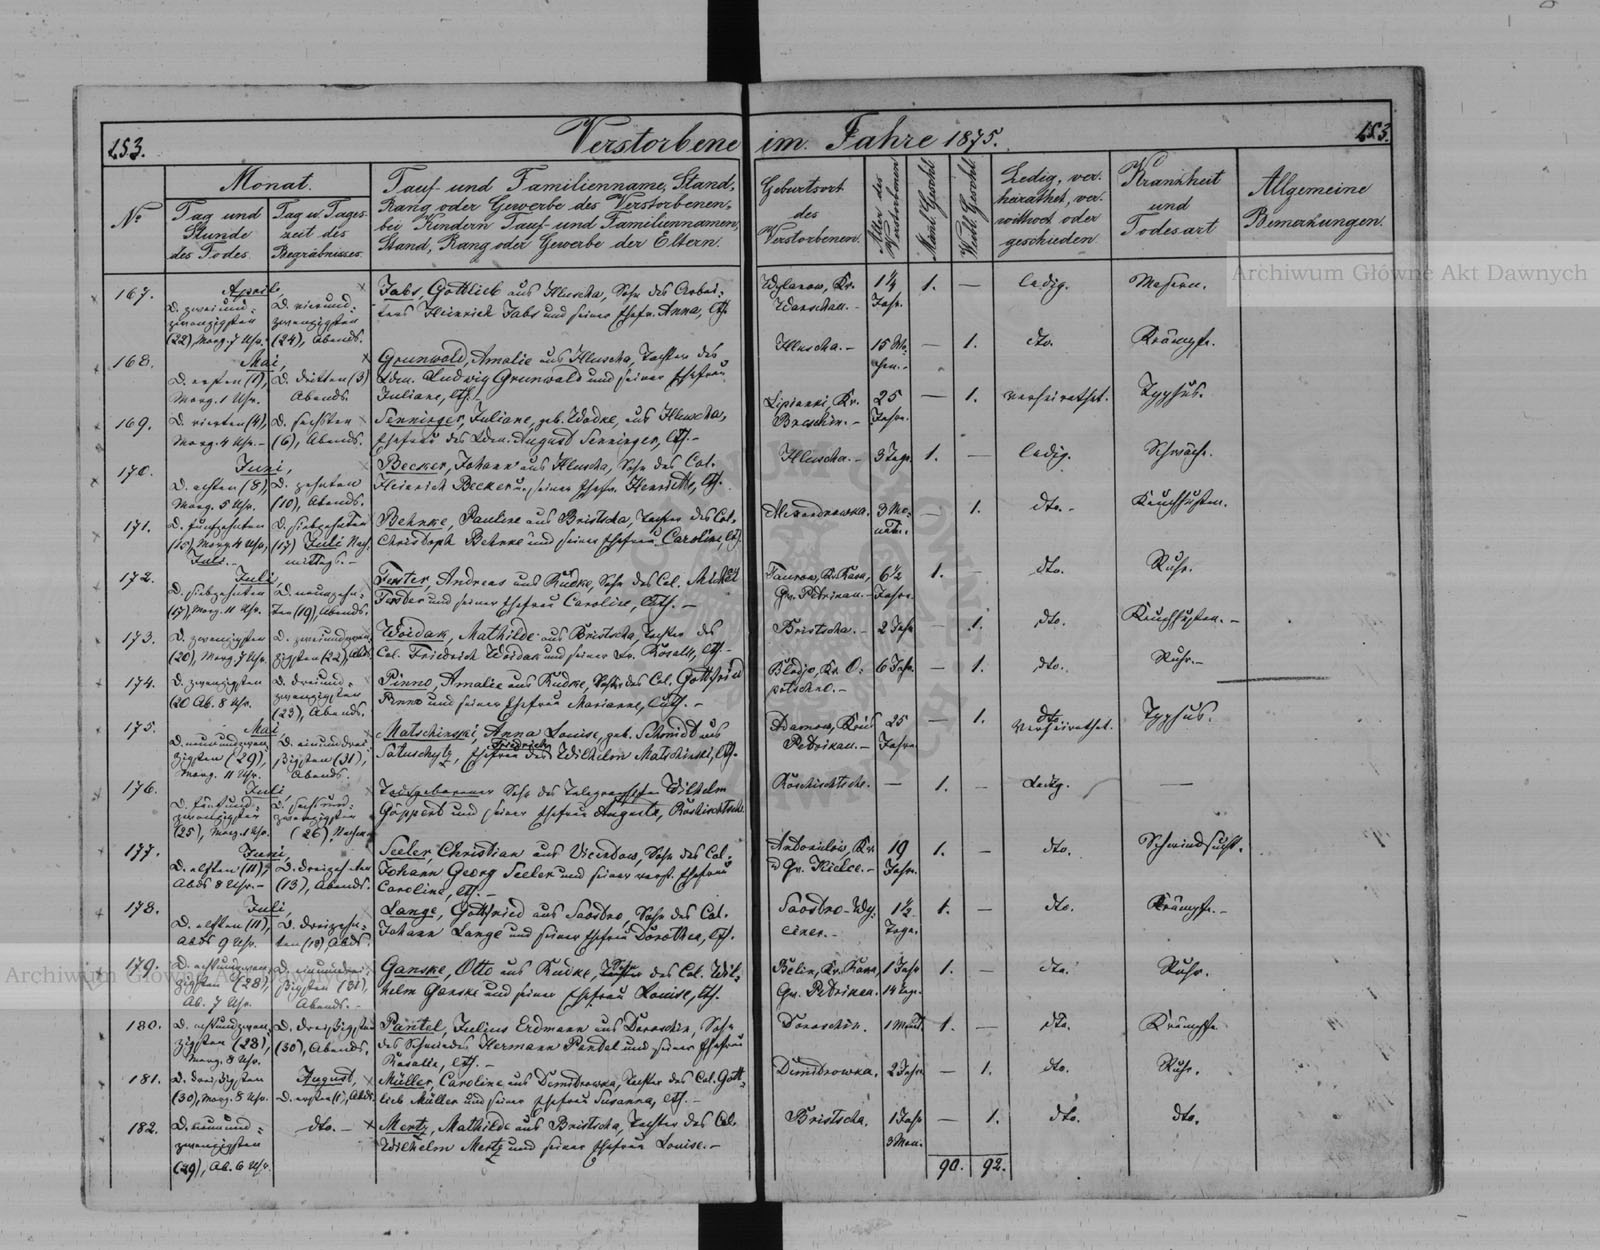 253.
Verstorbene im Jahre 1875.
253.
No
Monat.
Tag und Stunde des Todes.
Tag u. Tageszeit des Begräbnisses.
Tauf- und Familienname, Stand,
Rang oder Gewerbe des Verstorbenen,
bei Kindern Tauf- und Familiennamen,
Stand, Rang oder Gewerbe der Eltern.
Geburtsort
des
Verstorbenen.
Alter des Verstorbenen
Männl. Geschl.
Weibl. Geschl.
Ledig, ver-
heirathet, ver-
wittwet oder
geschieden
Krankheit
und
Todesart
Allgemeine
Bemerkungen.
Archiwum Główne Akt Dawnych
167.
April,
D. zweiund-
zwanzigsten
(22), Morg. 7 Uhr.
D. vierund-
zwanzigsten
(24), Abends.
Jabs, Gottlieb aus Kluscha, Sohn des Arbei-
ters Heinrich Jabs und seiner Ehefr. Anna,
Kr.
Warschau.
1¼
Jahr.
1.
—
ledig.
Masern.
168.
Mai,
D. ersten (1),
Morg. 1 Uhr.
D. dritten (3)
Abends.
Grunwald, Amalie aus Kluscha, Tochter des
Ldm. Ludwig Grunwald und seiner Ehefrau
Juliane,
Kluscha.
15 Wo-
chen.
—
1.
dto.
Krämpfe.
169.
D. vierten (4),
Morg. 4 Uhr.
D. sechsten
(6), Abends.
Senninger, Juliane, geb. Wodke, aus Kluscha,
Ehefrau des Ldm. August Senninger,
Lipianki, Kr.
25
Jahre.
—
1.
verheirathet.
Typhus.
170.
Juni,
D. achten (8),
Morg. 5 Uhr.
D. zehnten
(10), Abends.
Becker, Johann aus Kluscha, Sohn des Col.
Heinrich Becker u. seiner Ehefr. Henriette,
Kluscha.
3 Tage.
1.
—
ledig.
Schwäche.
171.
D. funfzehnten
(15), Morg. 4 Uhr,
Juli.
D. siebzehnten
(17) Juli Nach-
mittags.
Behnke, Pauline aus Bristscha, Tochter des Col.
Christoph Behnke und seiner Ehefrau Caroline,
Alexandrowka.
3 Mo-
nate.
—
1.
dto.
Keuchhusten.
172.
Juli,
D. siebzehnten
(17), Morg. 11 Uhr.
D. neunzehn-
ten (19), Abends.
Andreas aus Rudke, Sohn des Col. Michael
und seiner Ehefrau Caroline,
Gv. Petrikau.
6½
Jahre.
1.
—
dto.
Ruhr.
173.
D. zwanzigsten
(20), Morg. 7 Uhr.
D. zweiundzwan-
zigsten (22), Abds.
Woidak, Mathilde aus Bristscha, Tochter des
Col. Friedrich Woidak und seiner Fr. Rosalie,
Bristscha.
2 Jahr
—
1.
dto.
Keuchhusten.
174.
D. zwanzigsten
(20 Ab. 8 Uhr.
D. dreiund-
zwanzigsten
(23), Abends.
Pinno, Amalie aus Rudke, Tochter des Col. Gottfried
Pinno und seiner Ehefrau Marianne,
6 Jahr
—
1.
dto.
Ruhr.
175.
Mai,
D. neunundzwan-
zigsten (29),
Morg. 11 Uhr.
D. einunddrei-
ßigsten (31),
Abends.
Matschinski, Anna Louise, geb. Schmidt aus
Ehefrau des Friedrich Wilhelm Matschinski,
Petrikau.
25
Jahre
—
1.
verheirathet.
Typhus.
176.
Juli,
D. fünfund-
zwanzigsten
(25), Morg. 1 Uhr.
D. sechsund-
zwanzigsten
(26), Nachm.
Todgeborener Sohn des Telegraphisten Wilhelm
Göppert und seiner Ehefrau Auguste,
—
1.
—
ledig.
—
177.
Juni,
D. elften (11),
Abds 8 Uhr.
D. dreizehnten
(13), Abends.
Seeler, Christian aus Sohn des Col.
Johann Georg Seeler und seiner verst. Ehefrau
Caroline,
Gv. Kielce.
19
Jahre.
1.
—
dto.
Schwindsucht.
178.
Juli,
D. elften (11),
Abds 9 Uhr.
D. dreizehn-
ten (13), Abds.
Lange, Gottfried aus Saostro, Sohn des Col.
Johann Lange und seiner Ehefrau Dorothea,
1½
Tage.
1.
—
dto.
Krämpfe.
179.
D. achtundzwan-
zigsten (28),
Ab. 7 Uhr.
D. einunddrei-
ßigsten (31),
Abends.
Ganske, Otto aus Rudke, Sohn des Col. Wil-
helm Ganske und seiner Ehefrau Louise,
Gv. Petrikau.
1 Jahr
14 Tage.
1.
—
dto.
Ruhr.
180.
D. achtundzwan-
zigsten (28),
Morg. 8 Uhr.
D. dreißigsten
(30), Abends.
Pantel, Julius Erdmann aus Doroschin, Sohn
des Schmiedes Hermann Pantel und seiner Ehefrau
Rosalie,
Doroschin.
1 Monat.
1.
—
dto.
Krämpfe
181.
D. dreißigsten
(30), Morg. 8 Uhr.
August,
D. ersten (1), Abds.
Müller, Caroline aus Dimidrowka, Tochter des Col. Gott-
lieb Müller und seiner Ehefrau Susanna,
Dimidrowka.
2 Jahre
—
1.
dto.
Ruhr.
182.
D. neunund-
zwanzigsten
(29), Ab. 6 Uhr.
dto.
Mertz, Mathilde aus Bristscha, Tochter des Col.
Wilhelm Mertz und seiner Ehefrau Louise.
Bristscha.
1 Jahr
3 Mon.
—
1.
dto.
dto.
90.
92.
Archiwum Główne Akt Dawnych